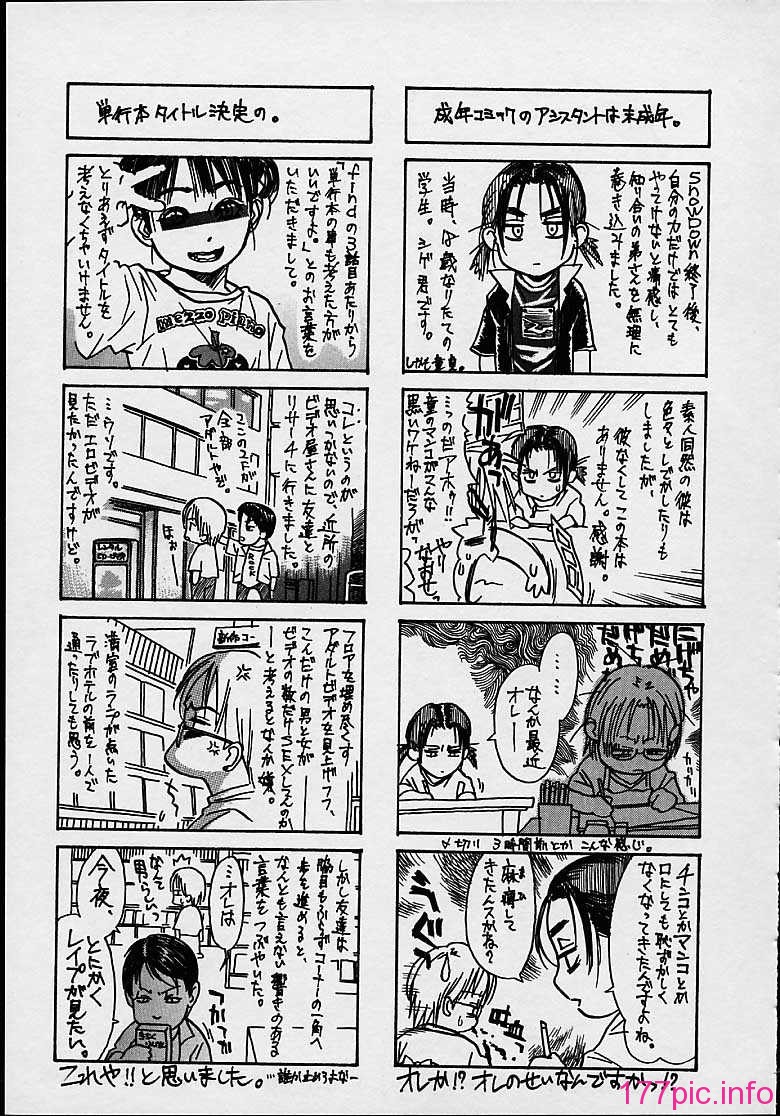 成年コミックのアシスタントは未成年。
SNOWDOWN終了後、
自分の力だけではとても
やってけないと痛感し、
知り合いの弟さんを無理に
巻き込みました。
当時、18歳なりたての
学生。シゲ君です。
しかも童貞。
素人同然の彼は
色々としでかしたりも
しましたが、
彼なくしてこの本は
ありません。感謝。
…っのどアホゥ!!
童のマンコがこんな
黒いワケねーだろがっ
なんか最近
オレ──
〆切り3時間前とかこんな感じ。
チンコとかマンコとか
口にしても恥ずかしく
なくなってきたんですよね。
麻痺して
きたんスかね?
オレか!?オレのせいなんですかっ!?
単行本タイトル決定の。
findの3話目あたりから
「単行本の事も考えた方が
いいですよ。」とのお言葉を
いただきまして。
とりあえずタイトルを
考えなくちゃいけません。
mezzo piano
コレというのが
思いつかないので、近所の
ビデオ屋さんに友達と
リサーチに行きました。
ココの2Fが
全部
アダルトやで。
ほぉ…
…ウソです。
ただエロビデオが
見たかったんですけど。
フロアを埋め尽くす
アダルトビデオを見上げ、フフ、
こんだけの男と女が
ビデオの数だけSEXしてんのか
ーと考えるとなんか嫌。
満室のランプが点いた
ラブホテルの前を一人で
通ったりしても思う。
しかし友達は
脇目もふらずコーナーの一角へ
歩を進めると、
なんとも言えない響きのある
言葉をつぶやいた。
…オレは
なんて
男らしいっ
今夜、
とにかく
レイプが見たい。
これや!!と思いました。…誰か止めろよなー
177pic.info